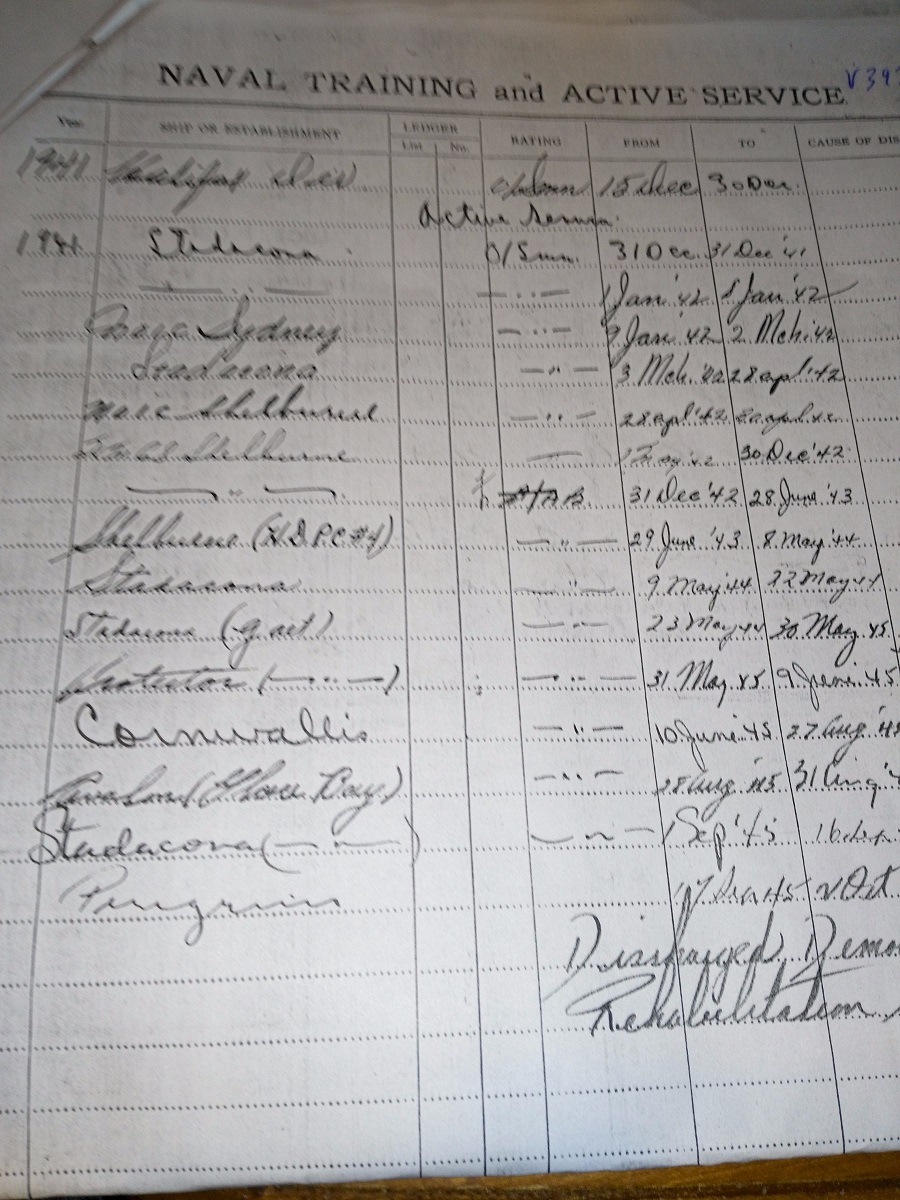 NAVAL TRAINING and ACTIVE SERVICE V 39
Year SHIP OR ESTABLISHMENT LEDGER List No. RATING FROM TO CAUSE OF DIS
1941 Halifax Div 15 Dec 30 Dec.
Active Service.
1941 Stadacona O/Smn. 31 Dec. 31 Dec '41
—— " —— — " — 1 Jan '42 8 Jan '42
Sydney — " — 9 Jan '42 2 Mch '42
Stadacona — " — 3 Mch. '42 28 apl '42
Shelburne — " — 28 apl '42
Shelburne — 30 Dec '42
—— " —— A.B. 31 Dec '42 28 June '43
Shelburne (H.D.P.C #4) — " — 29 June '43 8 May '44
Stadacona — " — 9 May '44 22 May 44
Stadacona (g. act) — " — 23 May 44 30 May 45
Protector (— " —) — " — 31 May 45 9 June 45
Cornwallis — " — 10 June 45 27 Aug '45
Avalon (Glace Bay) — " — 28 Aug '45 31 Aug '4
Stadacona (— " —) — " — 1 Sep '45 16 Sep
Peregrine 17 Sep 45 Oct
Discharged, Demo
Rehabilitation